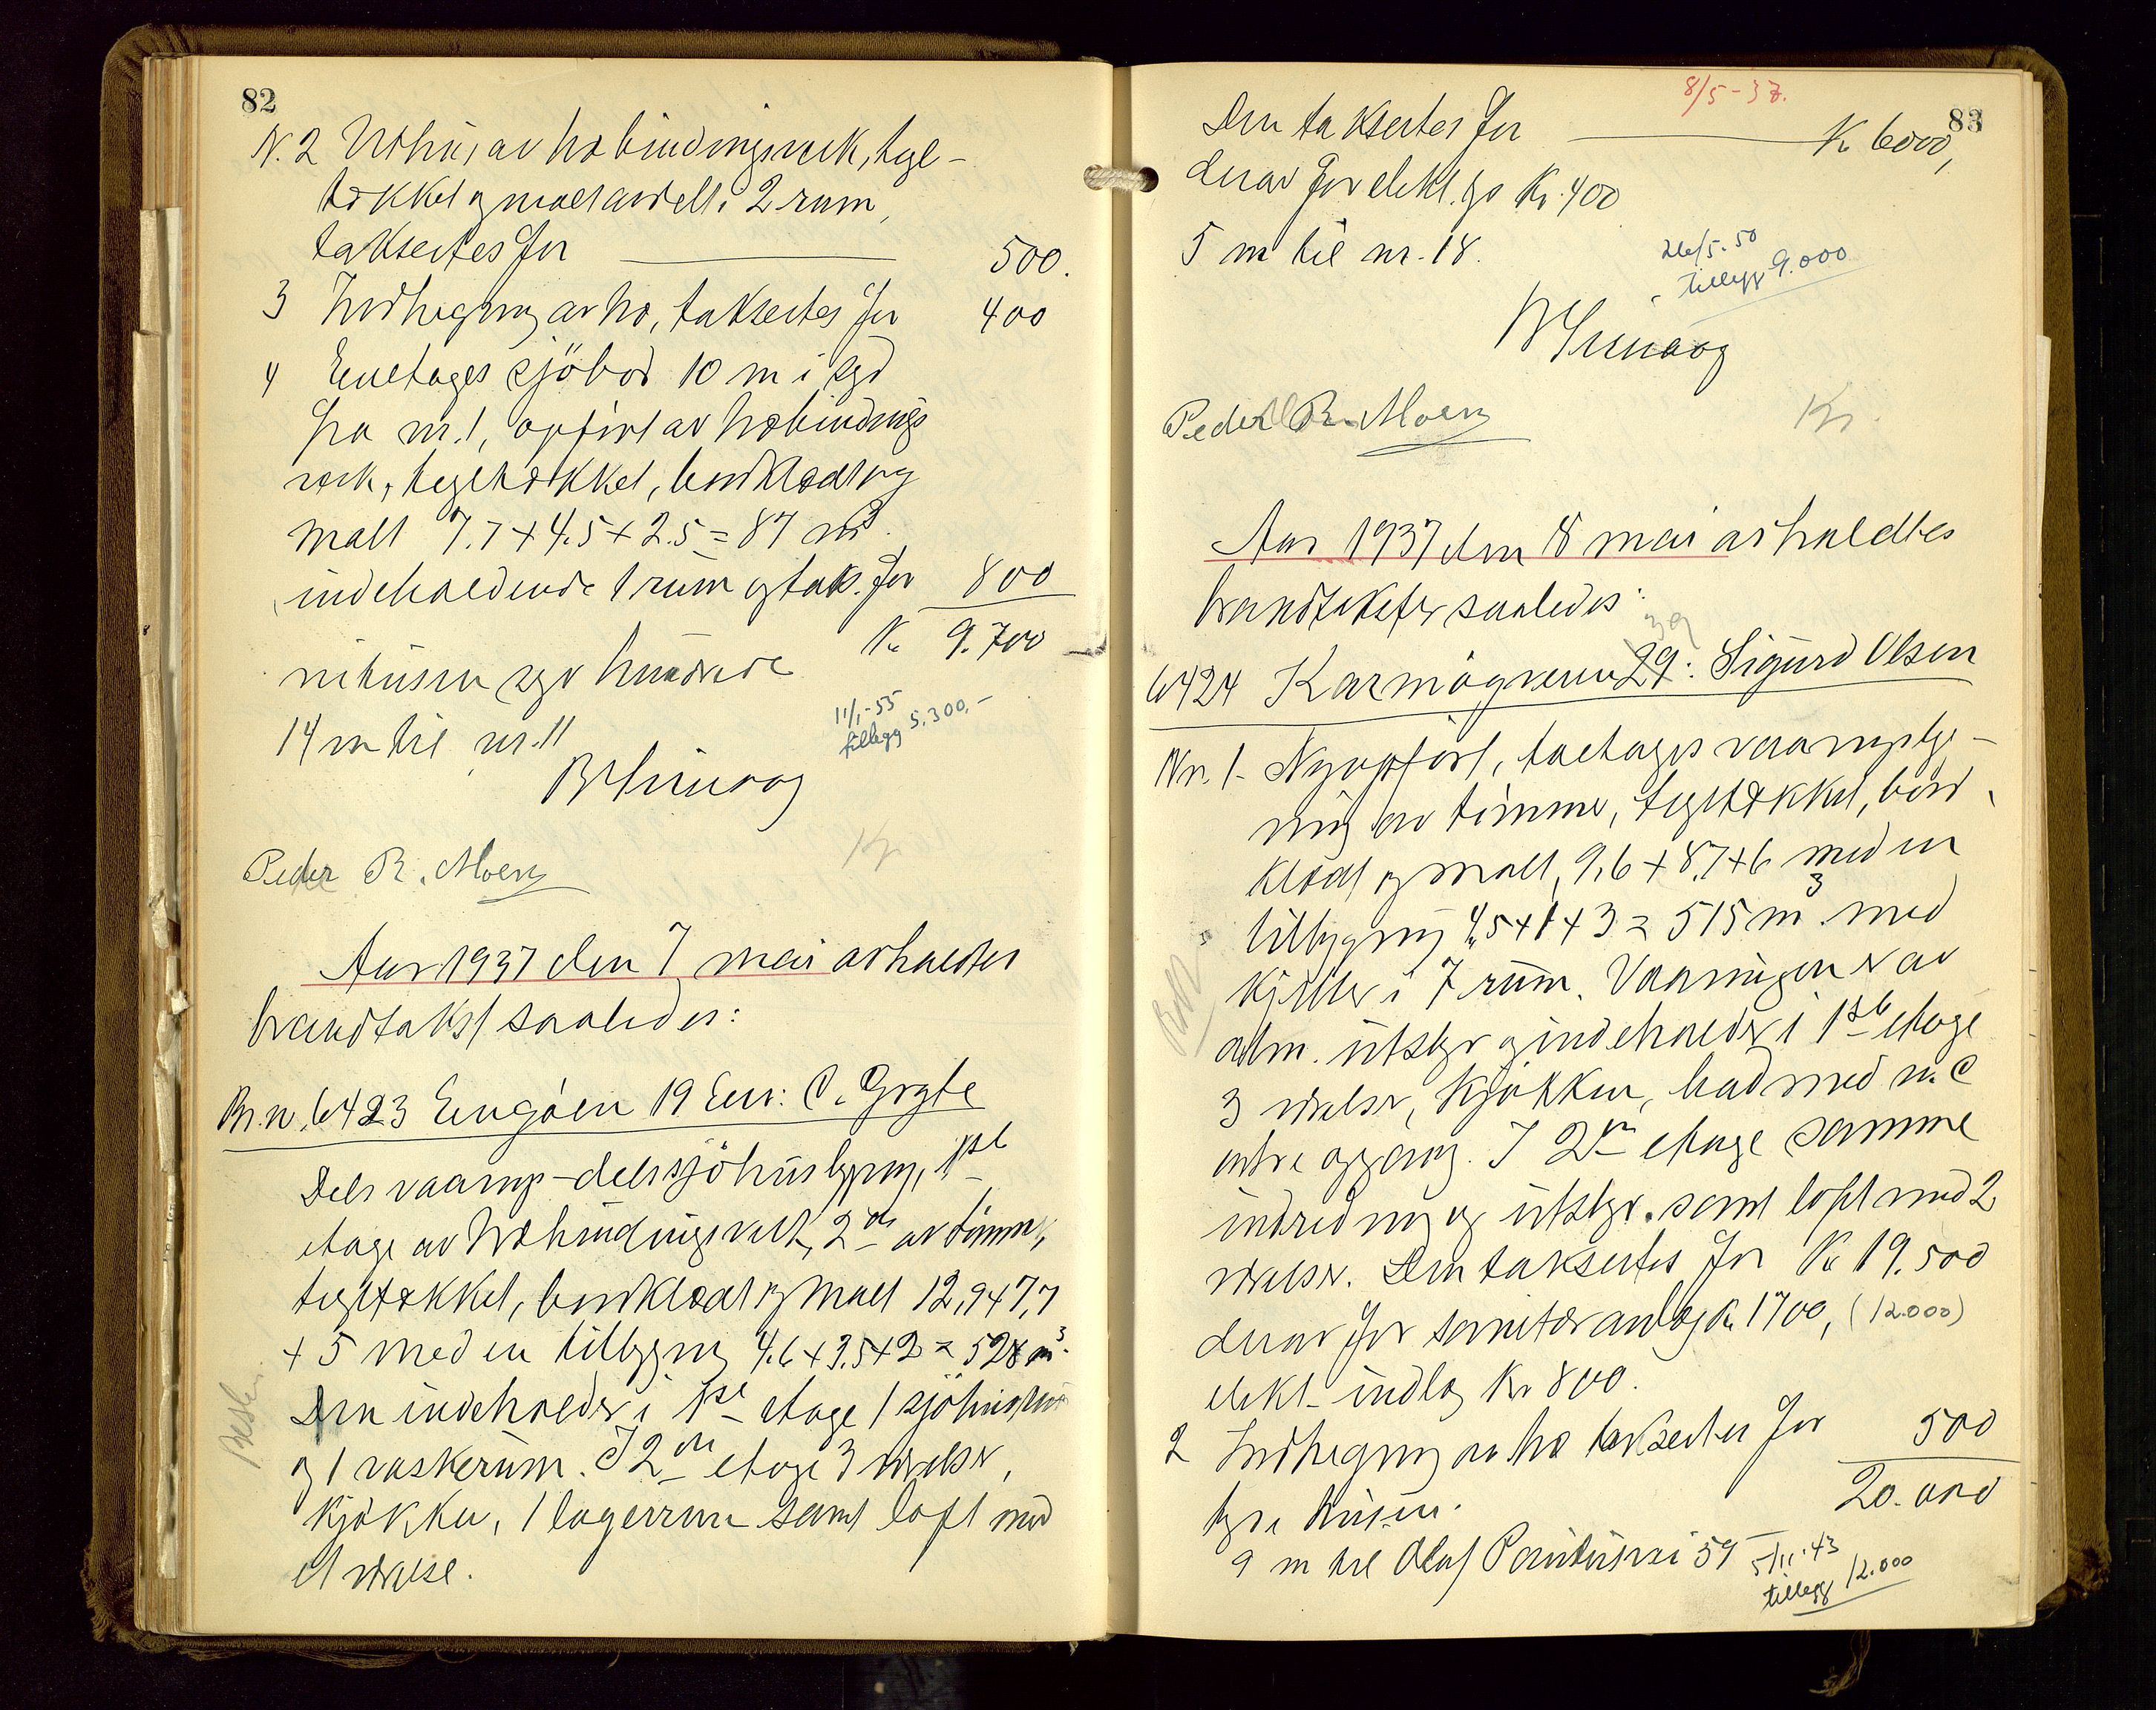 82
N. 2 Uthus av træbindingsverk, tegl-
tækket og malt avdelt i 2 rum,
taksertes for 500.
3 Indhegning av træ, taksertes for 400
4 Enetages sjöbod 10 m i syd
fra nr. 1, opfört av træbindings
verk, tegltækket, bordklædt og
malt 7.7+4.5+2.5=87 m³.
indeholdende 1 rum og tak. for 800
Kr 9.700
nitusen syv hundrede
14 m til nr. 11
11/1-55
tillegg 5.300,-
Peder R. Moen
Kr.
Aar 1937 den 7 mai avholdtes
brandtakst saaledes:
Br. nr. 6423 Engöen 19 Eier: C. Gryte
Dels vaanings-dels sjöhusbygning, 1ste
etage av træbindingsverk, 2den av tömmer,
tegltækket, bordklædt og malt 12,9+7,7
+ 5 med en tilbygning 4.6+3.5+2=528 m³.
Den indeholder i 1ste etage 1 sjöhusrum
og 1 vaskerum. I 2den etage 3 værelser,
kjøkken, 1 lagerrum samt loft med
et værelse.
Besl.
8/5-37.
83
Den taksertes for Kr 6000,
derav for elekt. lys Kr. 400
5 m til nr. 18.
26/5.50
tillegg 9.000
Peder R. Moen
Kr.
Aar 1937 den 8 mai avholdtes
brandtakster saaledes:
39
6424 Karmöygaten 29: Sigurd Olsen
Nr. 1- Nyopfört, toetages vaaningsbyg-
ning av tömmer, tegltækket, bord-
klædt og malt, 9,6+8,7+6 med en
tilbygning 4,5+1+3=515 m³ med
kjeller i 7 rum. Vaaningen er av
alm. utstyr og indeholder i 1ste etage
3 værelser, kjøkken, bad med w.c
entre opgang. I 2den etage samme
indredning og utstyr. samt loft med 2
værelser. Den taksertes for Kr 19.500
derav for sanitæranlæg kr. 1700, (12.000)
elekt. indlæg Kr 800.
2 Indhegning av træ taksertes for 500
20.000
tyve tusen.
9 m til Olaf 59
5/11.43
tillegg 12.000